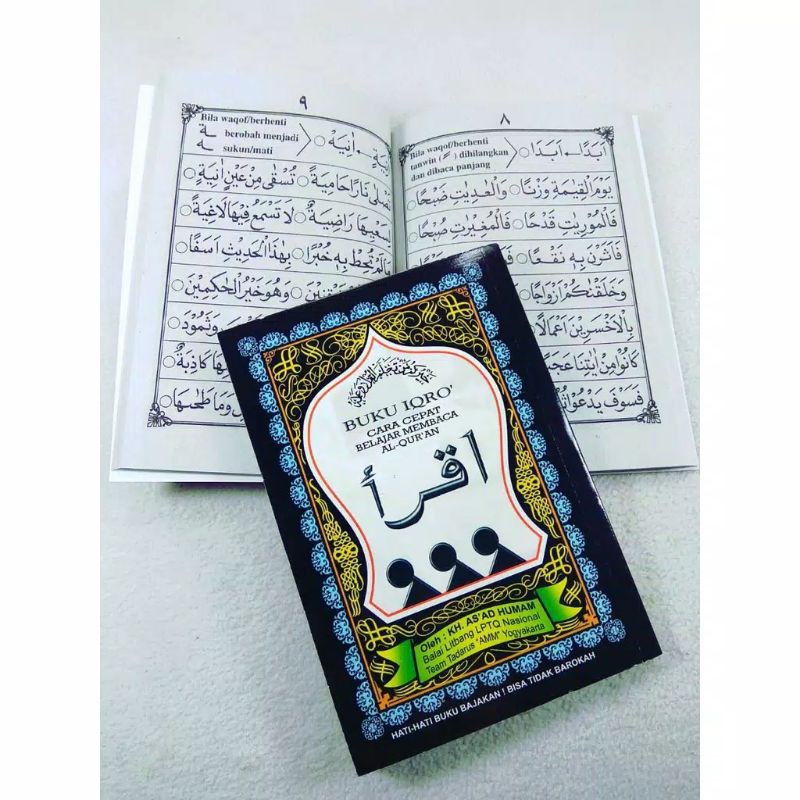 ٨
اَبَدًا ← اَبَدَا
Bila waqof/berhenti
tanwin ( ـً ) dihilangkan
dan dibaca panjang
يَوْمَ الْقِيٰمَةِ وَزْنًا ○ وَالْعٰدِيٰتِ ضَبْحًا
فَالْمُوْرِيٰتِ قَدْحًا ○ فَالْمُغِيْرٰتِ صُبْحًا
فَاَثَرْنَ بِهٖ نَقْعًا ○
وَخَلَقْنٰكُمْ اَزْوَاجًا ○
بِالْاَخْسَرِيْنَ اَعْمَالًا
كَانُوْا مِنْ اٰيٰتِنَا عَجَبًا
فَسَوْفَ يَدْعُوْا
٩
اٰنِيَةٍ ← اٰنِيَهْ
Bila waqof/berhenti
ـة berobah menjadi
ـه sukun/mati
تَصْلٰى نَارًا حَامِيَةً ○ تُسْقٰى مِنْ عَيْنٍ اٰنِيَةٍ
لِسَعْيِهَا رَاضِيَةٌ ○ لَا تَسْمَعُ فِيْهَا لَاغِيَةً
مَالَمْ تُحِطْ بِهٖ خُبْرًا ○ بِهٰذَا الْحَدِيْثِ اَسَفًا
وَهُوَ خَيْرُ الْحٰكِمِيْنَ
وَثَمُوْدُ
كَاذِبَةٌ
وَمَا طَحٰىهَا
BUKU IQRO'
CARA CEPAT
BELAJAR MEMBACA
AL-QUR'AN
اقرأ
Oleh : KH. AS'AD HUMAM
Balai Litbang LPTQ Nasional
Team Tadarus "AMM" Yogyakarta
HATI-HATI BUKU BAJAKAN ! BISA TIDAK BAROKAH